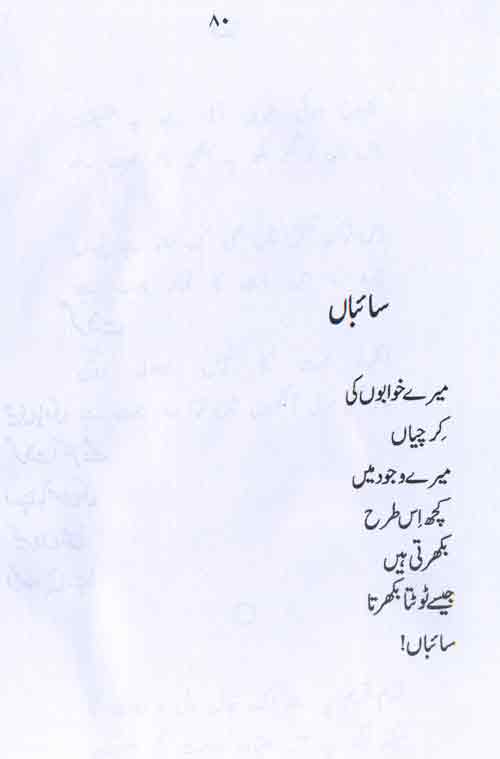 ۸۰
سائباں
میرے خوابوں کی
کِرچیاں
میرے وجود میں
کچھ اِس طرح
بکھرتی ہیں
جیسے ٹوٹتا بکھرتا
سائباں!